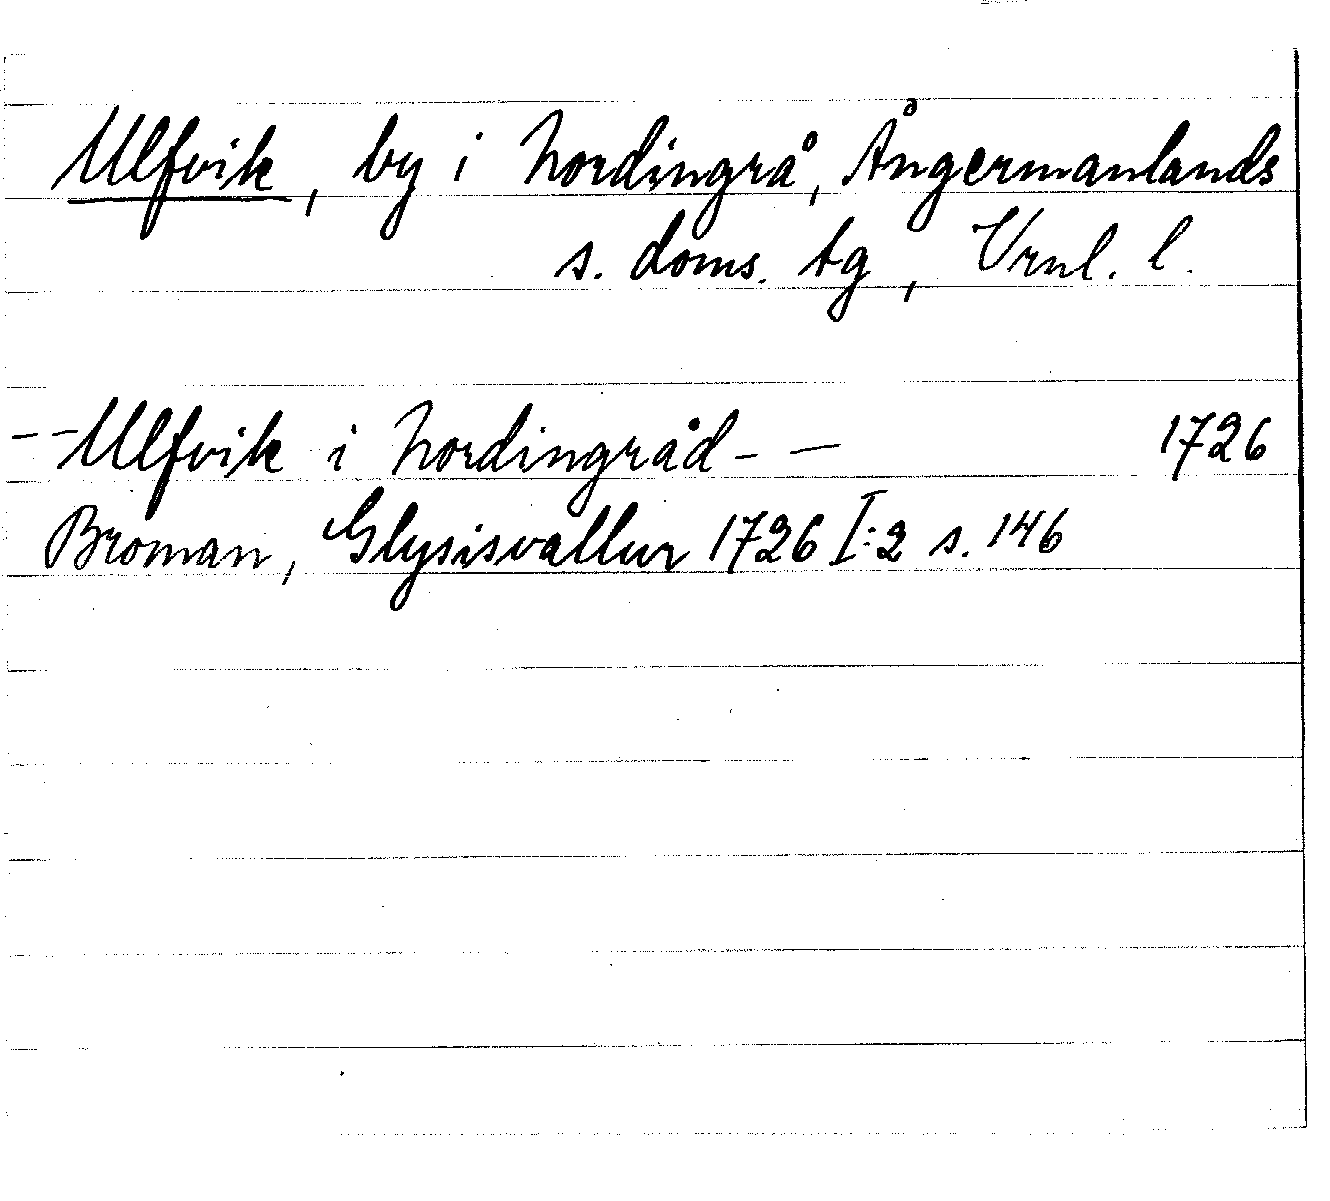 Ulfvik, by i Nordingrå, Ångermanlands
s. doms. tg, Vrnl. l.
--Ulfvik i Nordingråd-- 1726
Broman, Glysisvallur 1726 I:2 s. 146